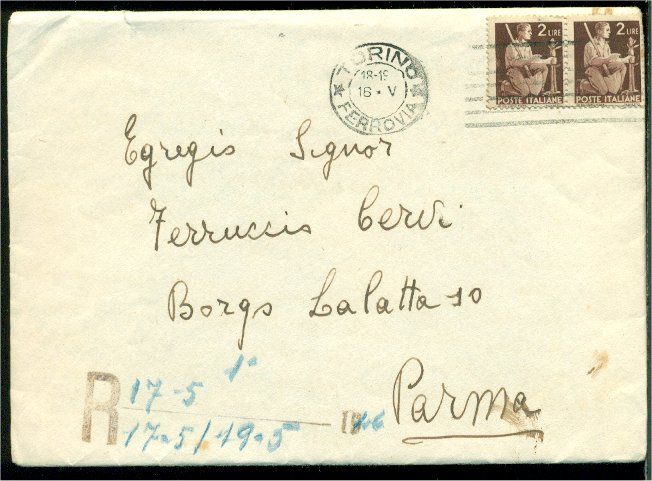 2 LIRE 2 LIRE
POSTE ITALIANE POSTE ITALIANE
TORINO
18-19
16 • V
FERROVIA
Egregio Signor
Ferruccio Cervi
Borgo Lalatta 10
Parma
1°
R 17-5
17-5/19-5